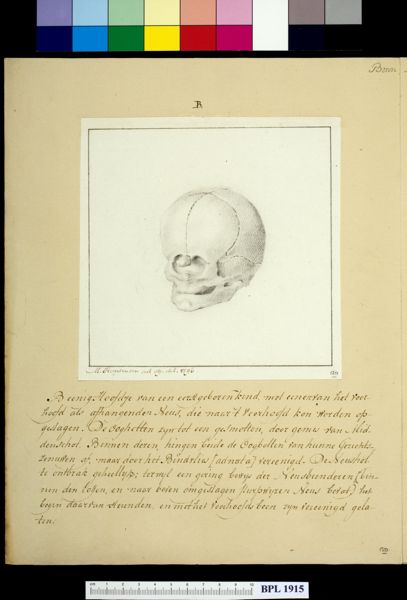 Beenig Hoofdje van een eerstgeboren kind, met een van het voor-
hoofd als afhangenden Neus, die naar 't Voorhoofd kon worden op-
geslagen. De oogholten zyn tot een gesmolten, door gemis van Mid-
denschot. Binnen deren hingen beide de Oogbollen van hunne Gezichts-
zenuwen af, maar door het Bindvlies (adnata) vereenigd. De Neushol-
te ontbrak geheellyk; terwyl een gering bewys der Neusbeenderen
en naar boven omgeslagen Neus bevat) het
begin daarvan en met het Voorhoofds been zyn vereenigd gela-
ten.
BPL 1915